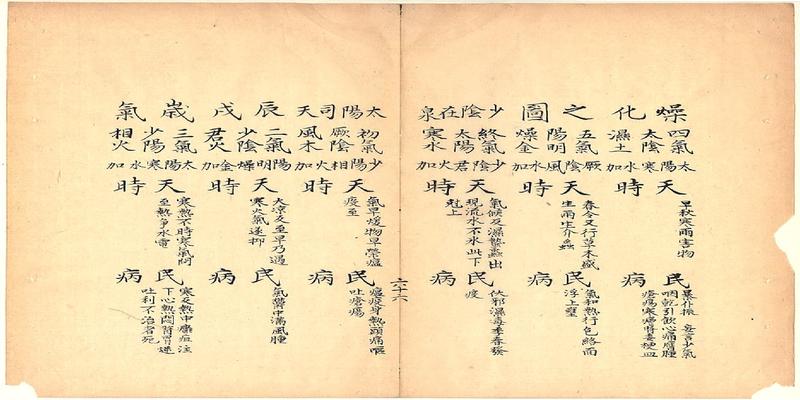 燥化之圖
少陰在泉
四氣
太陰
濕土
太陽寒水加
天時
早秋寒雨害物
民病
暴仆振 妄言少氣
咽乾引飲心痛癰腫
瘡瘍寒瘧骨痿便血
五氣
陽明
燥金
厥陰風木加
天時
春令又行草木盛
生雨生介蟲
民病
氣和熱行包絡面
浮上壅
終氣
太陽
寒水
少陰君火加
天時
氣候反濕蟄蟲出
現流水不氷此下
尅上
民病
伏邪濕毒季春發
疫
六十六
太陽司天
辰戌歲氣
初氣
厥陰
風木
少陽相火加
天時
氣早煖物早榮瘟
疫至
民病
瘟疫身熱頭痛嘔
吐瘡瘍
二氣
少陰
君火
陽明燥金加
天時
大凉反至旱乃遇
寒火氣遂抑
民病
氣鬱中滿風腫
三氣
少陽
相火
太陽寒水加
天時
寒熱不時寒氣間
至熱爭氷電
民病
寒反熱中癰疽注
下心熱悶瞀胃迷
吐利不治者死